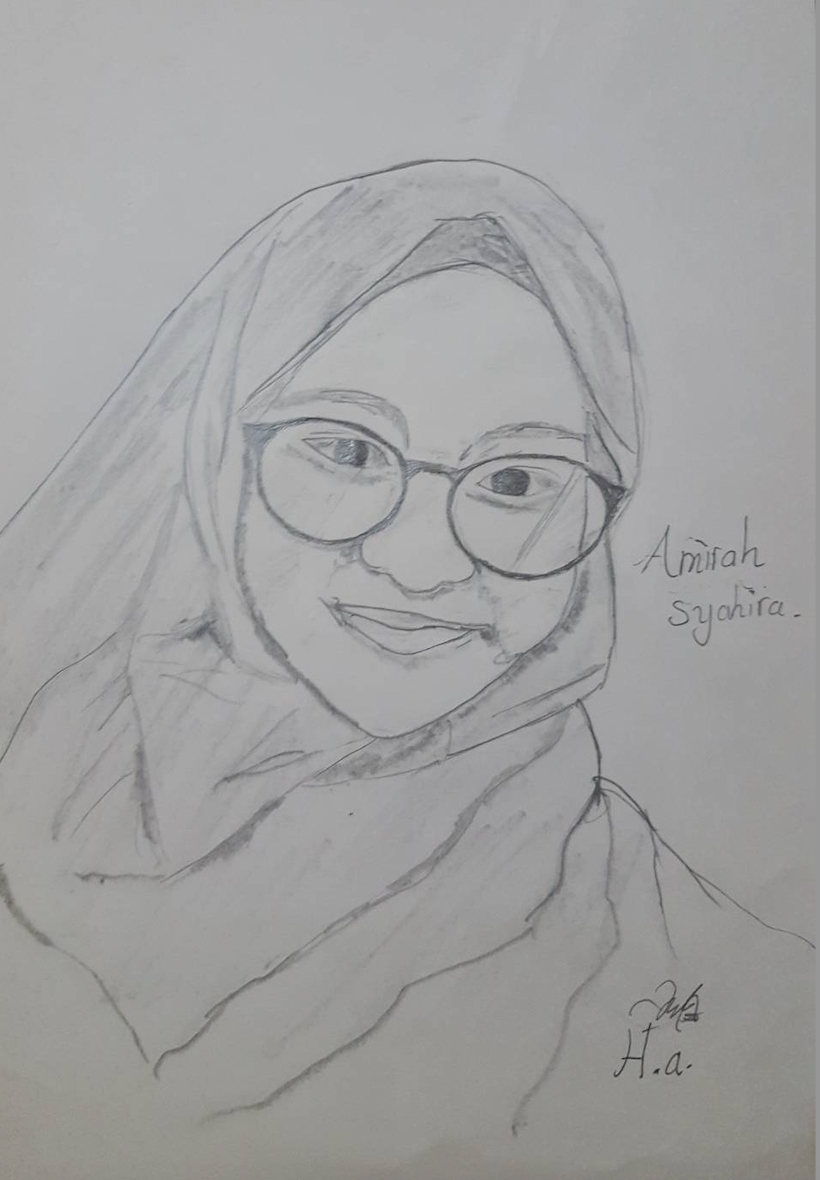 Amirah
Syahira.
H.a.